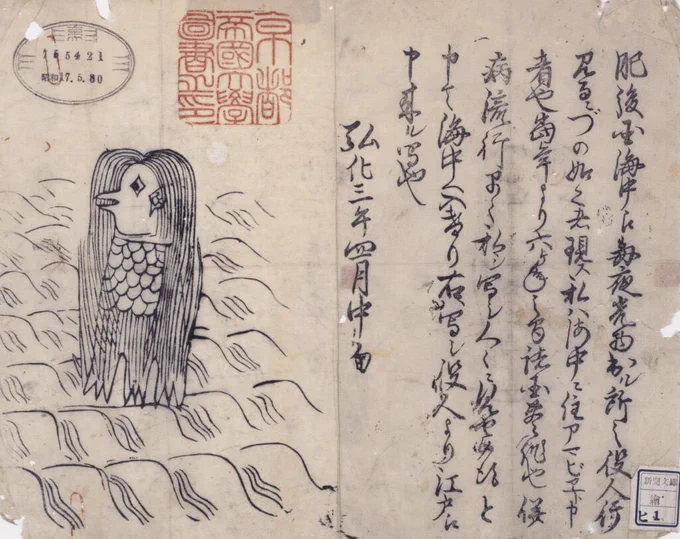 肥後国海中え毎夜光物出ル所之役人行
見るニづの如く者現ス私ハ海中ニ住アマビヱト申
者也当年より六ヶ年之間諸国豊作也併
病流行早々私ヲ写シ人々ニ見セ候得と
申て海中へ入けり右写シ役人より江戸え
申来ル写也
弘化三年四月中旬
京都
帝國大學
圖書之印
昭和17.5.30
新聞文庫
繪
ヒ1